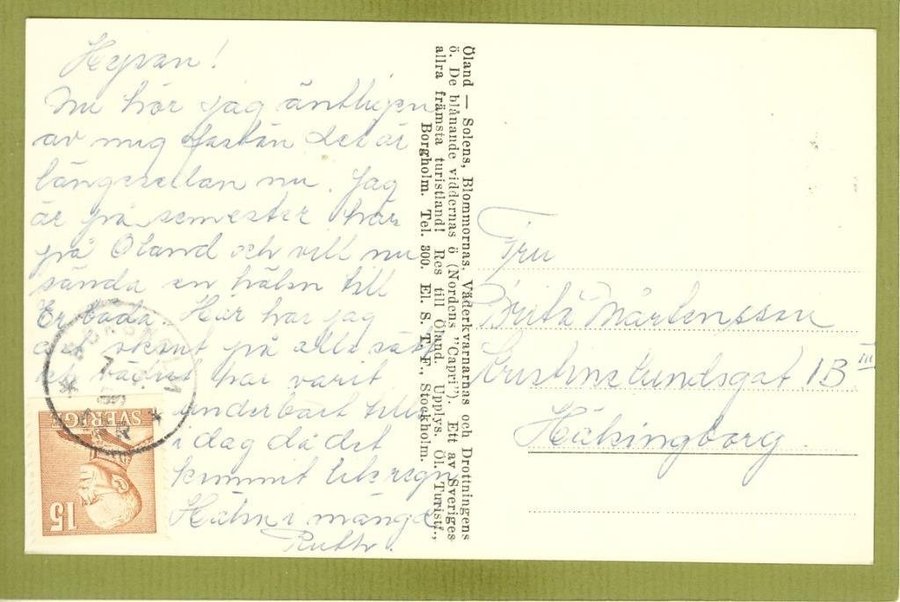 Hejsan!
Nu hör jag äntligen
av mig fastän det är
länge sedan nu. Jag
är på semester här
på Öland och vill nu
sända en hälsn till
Er båda. Här har jag
det skönt på alla sätt
vädret har varit
underbart tills
i dag då det
kommit lite regn
Hälsn i mängd
Ruth.
Öland — Solens, Blommornas, Väderkvarnarnas och Drottningens
ö. De blånande viddernas ö (Nordens "Capri"). Ett av Sveriges
allra främsta turistland! Res till Öland. Upplys. Öl. Turistf.,
Borgholm. Tel. 300. El. S. T. F., Stockholm.
Fru
Brita Mårtensson
Kristinelundsgat 1B III
Hälsingborg
SVERIGE
15